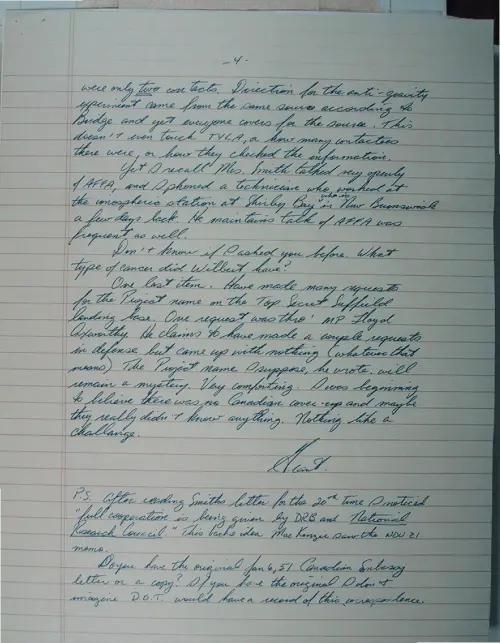 -4-
were only two contacts. Direction for the anti-gravity
experiment came from the same source according to
Bridge and yet everyone covers for the source. This
doesn't even touch TYLA, a how many contactees
there were, or how they checked the information.
Yet I recall Mrs. Smith talked very openly
of AFFA, and I phoned a technician who worked at
the ionospheric station at Shirley Bay who is in New Brunswick
a few days back. He maintains talk of AFFA was
frequent as well.
Don't know if I asked you before. What
type of cancer did Wilbert have?
One last item. Have made many requests
for the Project name on the Top Secret Suffield
landing base. One request was thro' MP Lloyd
Axworthy. He claims to have made a couple requests
in defense but came up with nothing (whatever that
means). The Project name I suppose, he wrote, will
remain a mystery. Very comforting. I was beginning
to believe there was no Canadian cover-up and maybe
they really didn't know anything. Nothing like a
challange.
Grant.
P.S. After reading Smiths letter for the 20th time I noticed
"full cooperation is being given by DRB and National
Research Council" This backs idea MacKenzie saw the NOV 21
memo.
Do you have the original Jan 6, 51 Canadian Embassy
letter or a copy? If you have the original I don't
imagine D.O.T. would have a record of this correspondence.